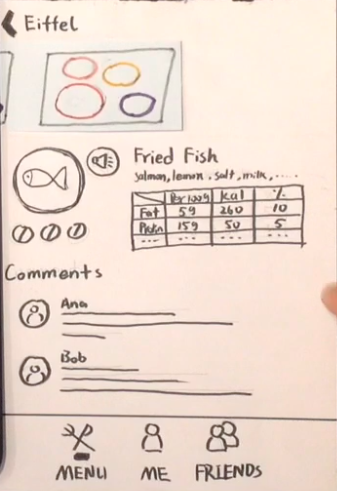 Eiffel
Fried Fish
salmon, lemon, salt, milk, .....
Per 100g kcal %
Fat 5g 260 10
Protein 15g 50 5
... ... ...
Comments
Ana
Bob
MENU ME FRIENDS